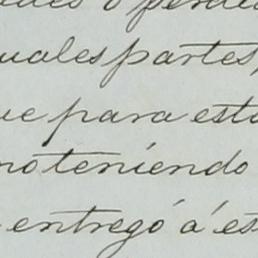 o perde
uales partes,
ue para esta
no teniendo
entregó á es